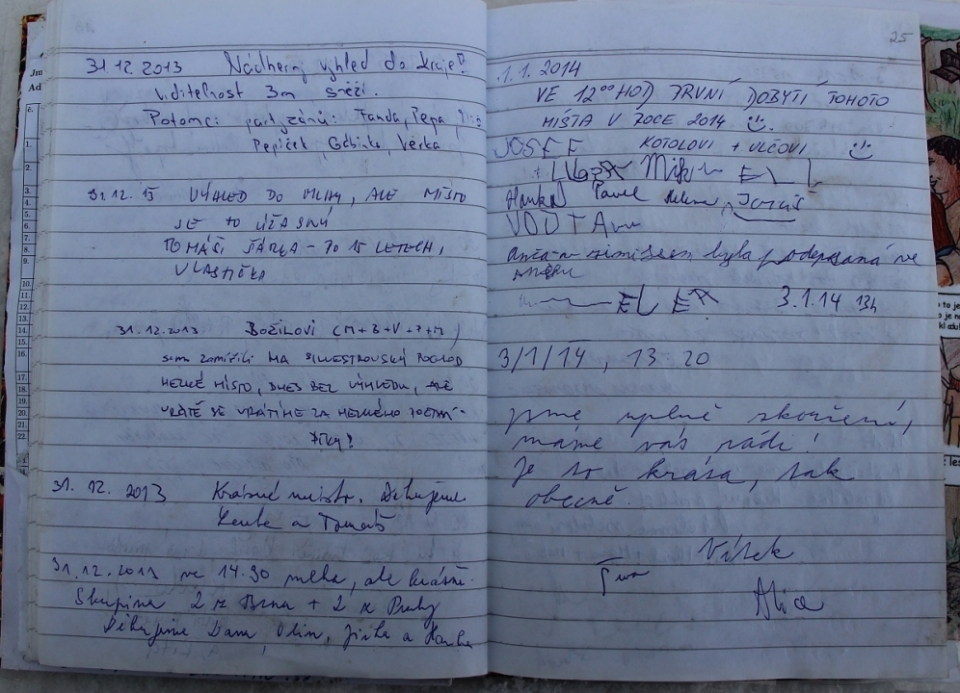 31.12.2013 Nádherný výhled do kraje!
viditelnost 3m sněží.
Potomci partyzánů: Fanda, Pepa
Pepíček, Věrka
31.12.13 VÝHLED DO MLHY, ALE MÍSTO
JE TO ÚŽASNÝ
TOMÁŠ, ŠÁRKA - PO 15 LETECH,
VLASTIČKA
31.12.2013 BOŽILOVI (M+B+V+P+M)
sem zamířili NA SILVESTROVSKÝ POCHOD
HEZKÉ MÍSTO, DNES BEZ VÝHLEDU, ALE
URČITĚ SE VRÁTÍME ZA HEZKÉHO POČASÍ
Díky!
31. 12. 2013 Krásné místo. Děkujeme
Lenka a Tomáš
31.12.2013 ve 14.30 mlha, ale krásně.
Skupina 2 z Brna + 2 z Prahy
Děkujeme Dana, Olin, Jirka a Hanka
25
1.1. 2014
VE 12⁰⁰ HOD PRVNÍ DOBYTÍ TOHOTO
MÍSTA V ROCE 2014
JOSEF KOTOLOVI + VLČOVI
Hanka Pavel Helena,
VOJTA
byla podepsaná ve
3.1.14 13h
3/1/14, 13.20
jsme úplně zkouření,
máme vás rádi!
Je to krása, tak
obecně.
Vítek
Alice